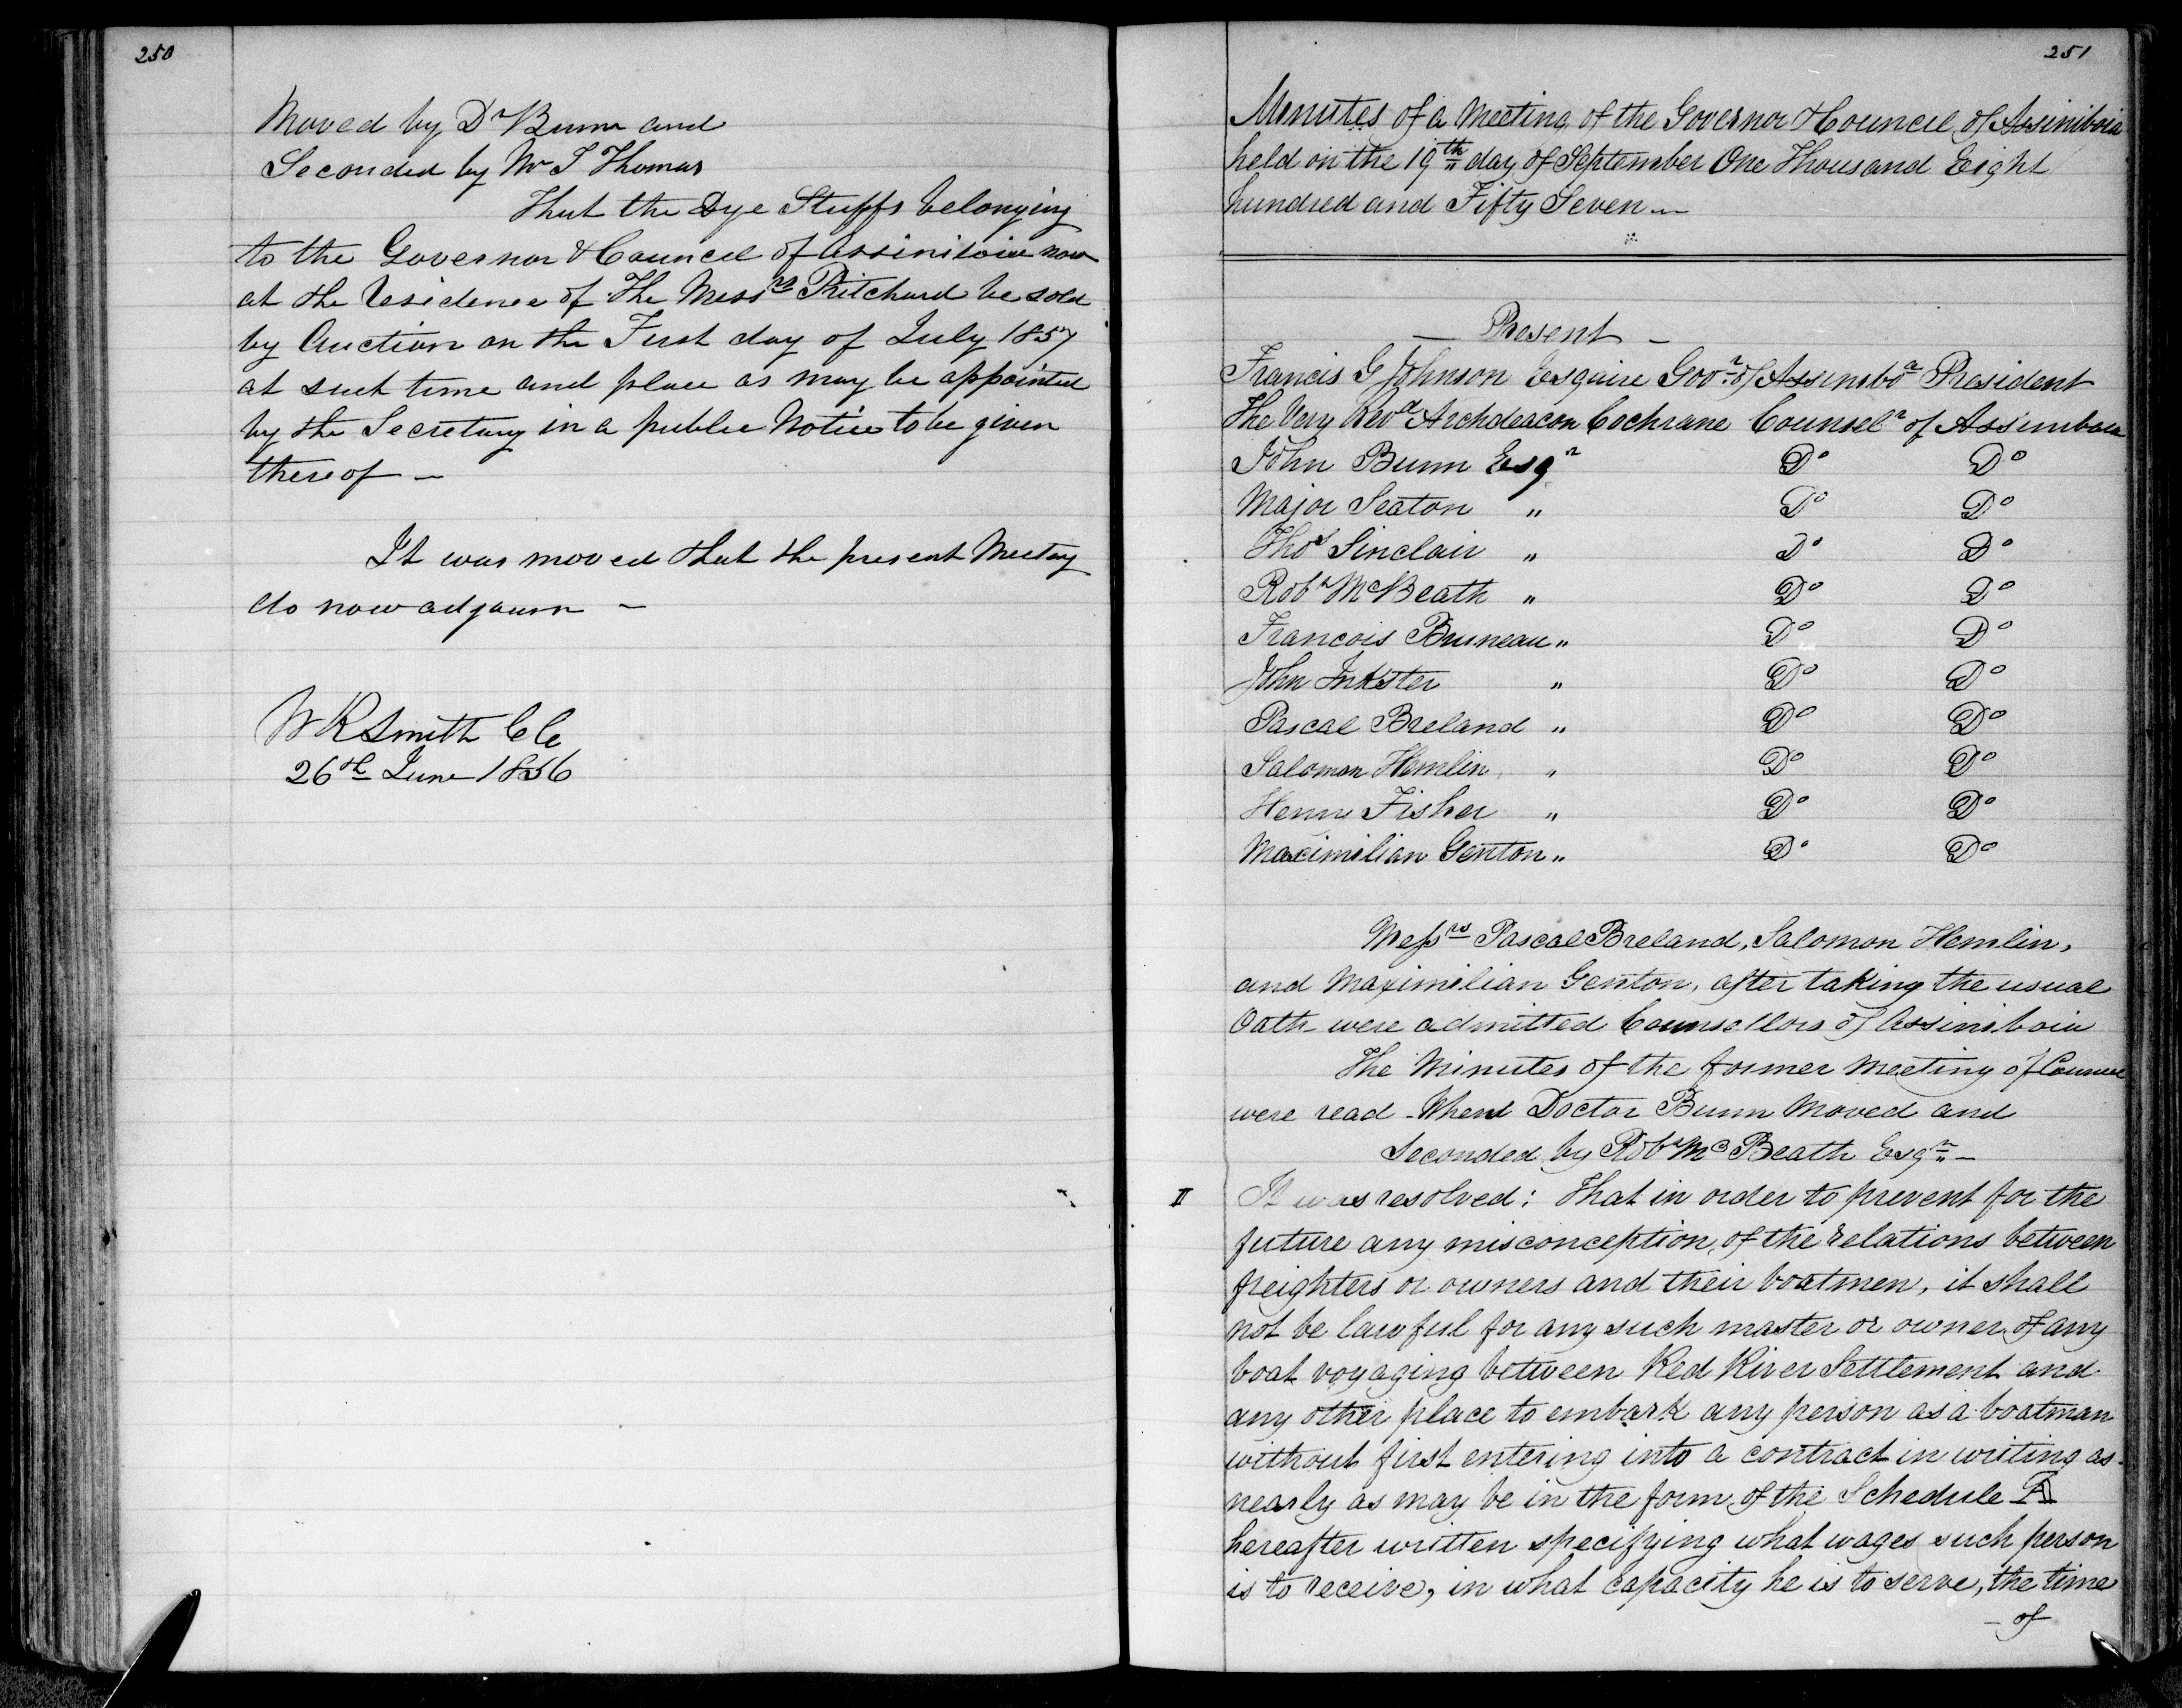 250
Moved by Dr Bunn and
Seconded by Mr T Thomas
That the Dye Stuffs belonging
to the Governor & Council of Assiniboia now
at the residence of The Messrs Pritchard be sold
by Auction on the First day of July 1857
at such time and place as may be appointed
by the Secretary in a public Notice to be given
thereof —
It was moved that the present Meeting
do now adjourn —
W R Smith CC
26th June 1856
251
Minutes of a Meeting of the Governor & Council of Assiniboia
held on the 19th day of September One Thousand Eight
hundred and Fifty Seven —
— Present —
Francis G Johnson Esquire Govr of Assiniboa President
The Very Revd Archdeacon Cochrane Counselr of Assiniboia
John Bunn Esqr Do Do
Major Seaton " Do Do
Thos Sinclair " Do Do
Robt McBeath " Do Do
Francois Bruneau " Do Do
John Inkster " Do Do
Pascal Breland " Do Do
Salomon Hemlin " Do Do
Henry Fisher " Do Do
Maximilian Genton " Do Do
Messrs Pascal Breland, Salomon Hemlin,
and Maximilian Genton, after taking the usual
Oath were admitted Counsellors of Assiniboia
The Minutes of the former Meeting of Council
were read - When Doctor Bunn Moved and
Seconded by Robt McBeath Esqr —
II It was resolved: That in order to prevent for the
future any misconception, of the relations between
freighters or owners and their boatmen, it shall
not be lawful for any such master or owner of any
boat voyaging between Red River Settlement and
any other place to embark any person as a boatman
without first entering into a contract in writing as
nearly as may be in the form of the Schedule A
hereafter written specifying what wages such person
is to receive, in what capacity he is to serve, the time
— of